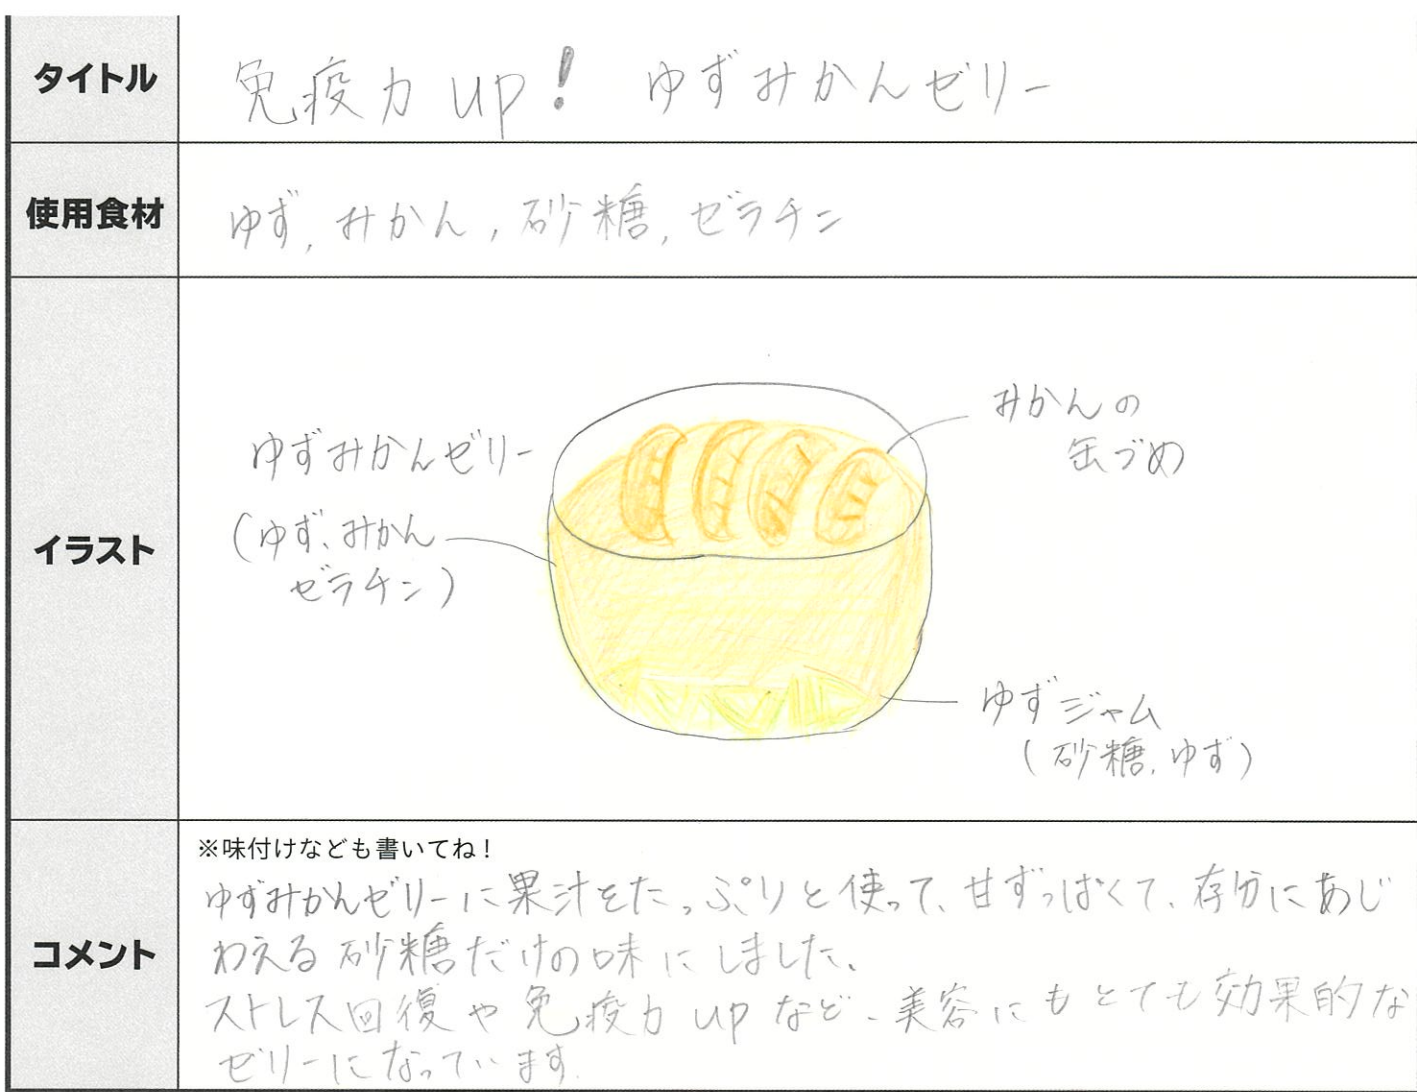 タイトル
免疫力up! ゆずみかんゼリー
使用食材
ゆず,みかん,砂糖,ゼラチン
イラスト
みかんの
缶づめ
ゆずみかんゼリー
(ゆず、みかん
ゼラチン)
ゆずジャム
(砂糖,ゆず)
コメント
※味付けなども書いてね!
ゆずみかんゼリーに果汁をたっぷりと使って、甘ずっぱくて、存分にあじ
わえる砂糖だけの味にしました。
ストレス回復や免疫力upなど、美容にもとても効果的な
ゼリーになっています。